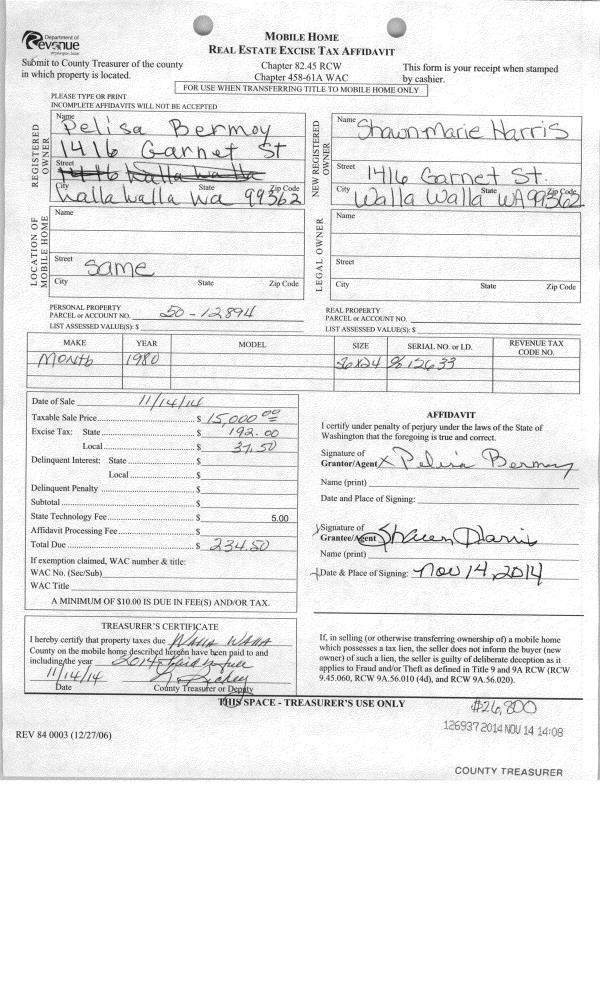 Department of
Revenue
Washington State
MOBILE HOME
REAL ESTATE EXCISE TAX AFFIDAVIT
Submit to County Treasurer of the county
in which property is located.
Chapter 82.45 RCW
Chapter 458-61A WAC
This form is your receipt when stamped
by cashier.
FOR USE WHEN TRANSFERRING TITLE TO MOBILE HOME ONLY
PLEASE TYPE OR PRINT
INCOMPLETE AFFIDAVITS WILL NOT BE ACCEPTED
REGISTERED OWNER
Name Pelisa Bermoy
1416 Garnet St
Street 1416 Walla Walla
City State Zip Code
Walla Walla Wa 99362
NEW REGISTERED OWNER
Name Shawn-Marie Harris
Street 1416 Garnet St.
City State Zip Code
Walla Walla WA 99362
LOCATION OF MOBILE HOME
Name
Street same
City State Zip Code
LEGAL OWNER
Name
Street
City State Zip Code
PERSONAL PROPERTY
PARCEL or ACCOUNT NO. 50-12894
LIST ASSESSED VALUE(S): $
REAL PROPERTY
PARCEL or ACCOUNT NO.
LIST ASSESSED VALUE(S): $
MAKE YEAR MODEL SIZE SERIAL NO. or I.D. REVENUE TAX CODE NO.
1980 12633
Date of Sale 11/14/14
Taxable Sale Price $ 15,000.00
Excise Tax: State $ 192.00
Local $ 37.50
Delinquent Interest: State $
Local $
Delinquent Penalty $
Subtotal $
State Technology Fee $ 5.00
Affidavit Processing Fee $
Total Due $ 234.50
If exemption claimed, WAC number & title:
WAC No. (Sec/Sub)
WAC Title
A MINIMUM OF $10.00 IS DUE IN FEE(S) AND/OR TAX.
AFFIDAVIT
I certify under penalty of perjury under the laws of the State of
Washington that the foregoing is true and correct.
Signature of
Grantor/Agent x Pelisa Bermoy
Name (print)
Date and Place of Signing:
Signature of
Grantee/Agent Shawn Harris
Name (print)
Date & Place of Signing: Nov 14, 2014
TREASURER'S CERTIFICATE
I hereby certify that property taxes due Walla Walla
County on the mobile home described hereon have been paid to and
including the year 2014 Paid in full
11/14/14
Date County Treasurer or Deputy
If, in selling (or otherwise transferring ownership of) a mobile home
which possesses a tax lien, the seller does not inform the buyer (new
owner) of such a lien, the seller is guilty of deliberate deception as it
applies to Fraud and/or Theft as defined in Title 9 and 9A RCW (RCW
9.45.060, RCW 9A.56.010 (4d), and RCW 9A.56.020).
THIS SPACE - TREASURER'S USE ONLY
$26,800
126937 2014 NOV 14 14:08
REV 84 0003 (12/27/06)
COUNTY TREASURER